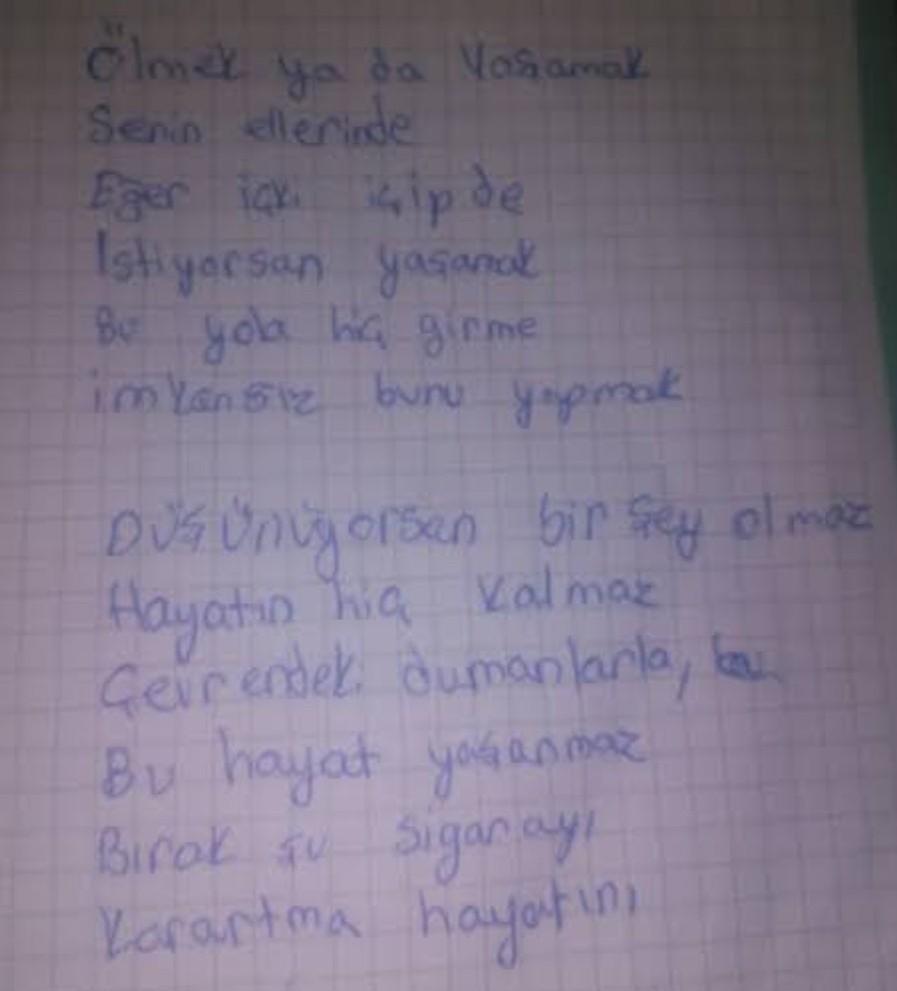 Ölmek ya da Yaşamak
Senin ellerinde
Eğer içki içip de
İstiyorsan yaşamak
Bu yola hiç girme
imkansız bunu yapmak
Düşünüyorsan bir şey olmaz
Hayatın hiç kalmaz
Çevrendeki dumanlarla,
Bu hayat yaşanmaz
Bırak şu sigarayı
Karartma hayatını